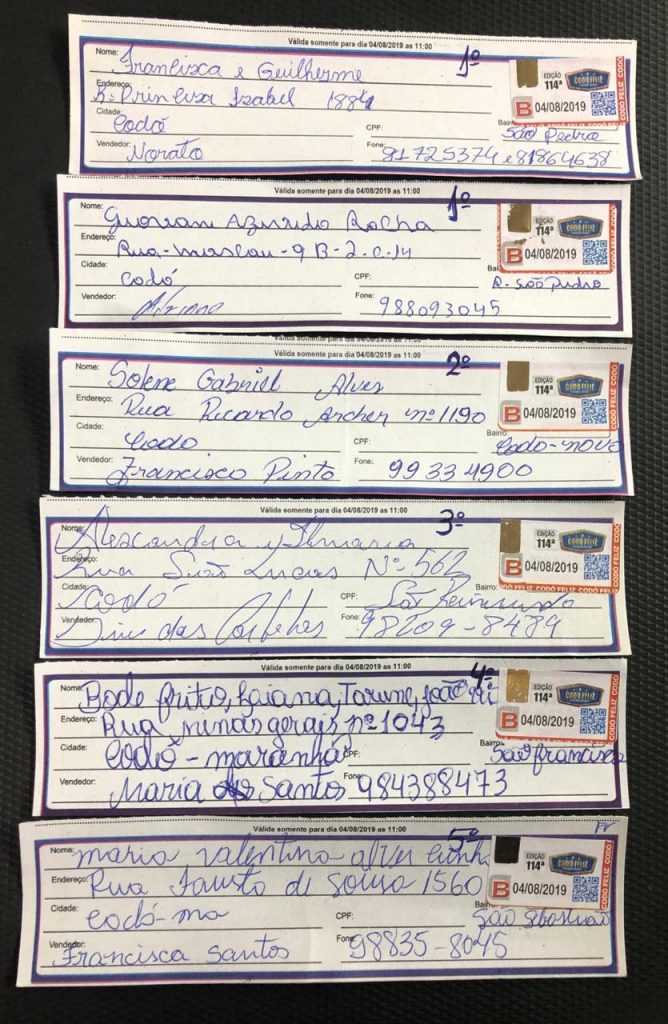 Válida somente para dia 04/08/2019 as 11:00
Nome: Francisca e Guilherme 1º
EDIÇÃO 114ª CODÓ FELIZ
Endereço: R. Princesa Izabel 1884
B 04/08/2019 CODÓ FELIZ
Cidade: Codó CPF: Bairro: São Pedro
Vendedor: Norato Fone: 81725374 e 81864638
Válida somente para dia 04/08/2019 as 11:00
Nome: Azevedo Rocha 1º
EDIÇÃO 114ª CODÓ FELIZ
Endereço: Rua - Moscou - 9 B-2-C-14
B 04/08/2019
Cidade: Codó CPF: R. São Pedro
Vendedor: Fone: 988093045
Válida somente para dia 04/08/2019 as 11:00
Nome: Solene Gabriel Alves 2º
EDIÇÃO 114ª CODÓ FELIZ
Endereço: Rua Ricardo Archer nº 1190
B 04/08/2019 CODÓ FELIZ CODÓ
Cidade: Codo CPF: Bairro: Codo-novo
Vendedor: Francisco Pinto Fone: 99334900
Válida somente para dia 04/08/2019 as 11:00
Nome: Alexandra 3º
EDIÇÃO 114ª CODÓ FELIZ
Endereço: Rua São Lucas Nº 562
B 04/08/2019 CODÓ FELIZ CODÓ
Cidade: Codó CPF: Bairro: São Raimundo
Vendedor: das Fone: 98209-8489
Válida somente para dia 04/08/2019 as 11:00
Nome: Bode frito, baiana, João 4º
EDIÇÃO 114ª CODÓ FELIZ
Endereço: Rua minas gerais nº 1043
B 04/08/2019
Cidade: Codó - maranhão Bairro: São francisco
Vendedor: Maria Santos Fone: 984388473
Válida somente para dia 04/08/2019 as 11:00
Nome: maria valentina alves cunha 5º
EDIÇÃO 114ª CODÓ FELIZ
Endereço: Rua Fausto de Sousa 1560
B 04/08/2019 CODÓ FELIZ
Cidade: Codó-ma CPF: Bairro: São Sebastião
Vendedor: Francisca Santos Fone: 98835-8045